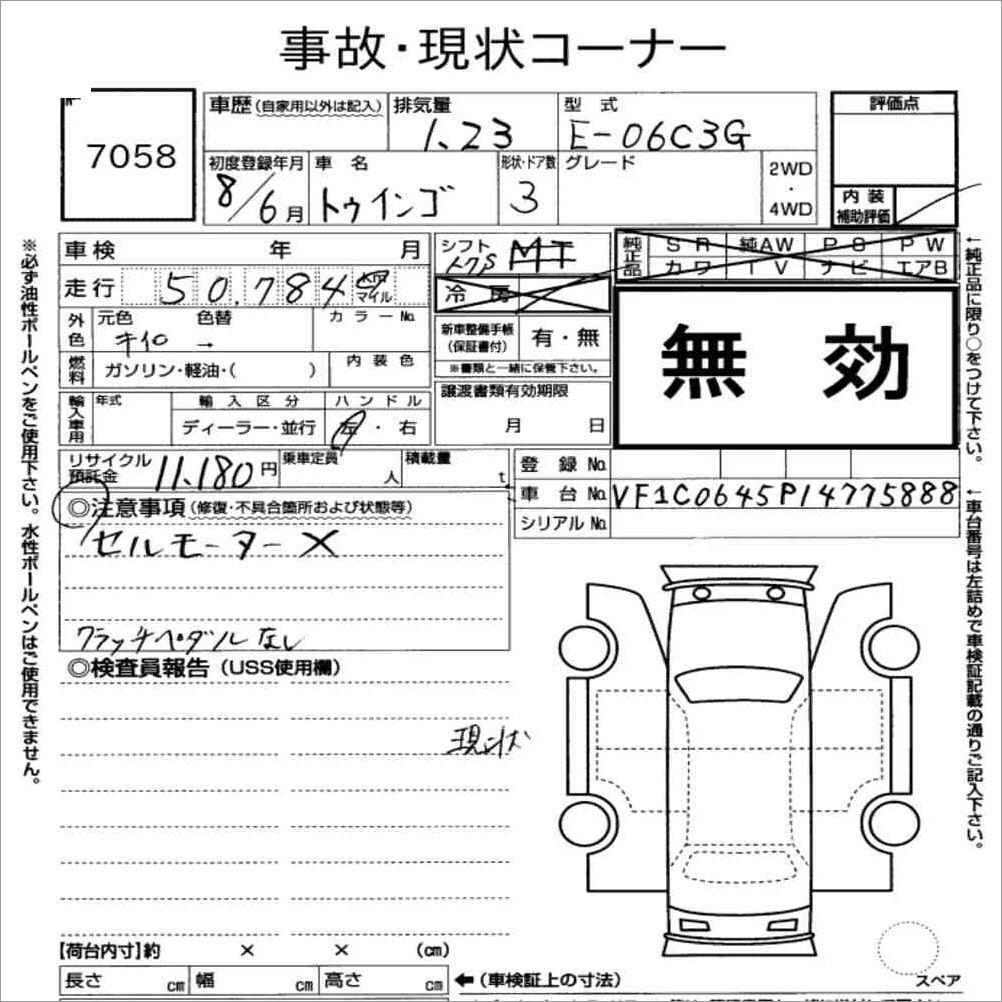 事故・現状コーナー
7058
車歴(自家用以外は記入)
排気量
1.23
型式
E-06C3G
評価点
初度登録年月
8/6月
車名
トゥインゴ
形状・ドア数
3
グレード
2WD
・
4WD
内装
補助評価
車検 年 月
走行 50,784 マイル
シフト
MT
冷房
純正品
SR 純AW PS PW
カワ TV ナビ エアB
無効
外色
元色 色替
キイロ →
カラーNo.
燃料
ガソリン・軽油・( )
内装色
新車整備手帳
(保証書付)
有・無
※書類と一緒に保管下さい。
輸入車用
年式
輸入区分
ディーラー・並行
ハンドル
左・右
譲渡書類有効期限
月 日
リサイクル
預託金
11,180円
乗車定員
人
積載量
t
登録No.
車台No. VF1C0645P14775888
シリアルNo.
◎注意事項(修復・不具合箇所および状態等)
セルモーター×
クラッチペダルなし
◎検査員報告(USS使用欄)
現状
【荷台内寸】約 × × (cm)
長さ cm 幅 cm 高さ cm
←(車検証上の寸法)
スペア
※必ず油性ボールペンをご使用下さい。水性ボールペンはご使用できません。
←純正品に限り○をつけて下さい。
←車台番号は左詰めで車検証記載の通りご記入下さい。